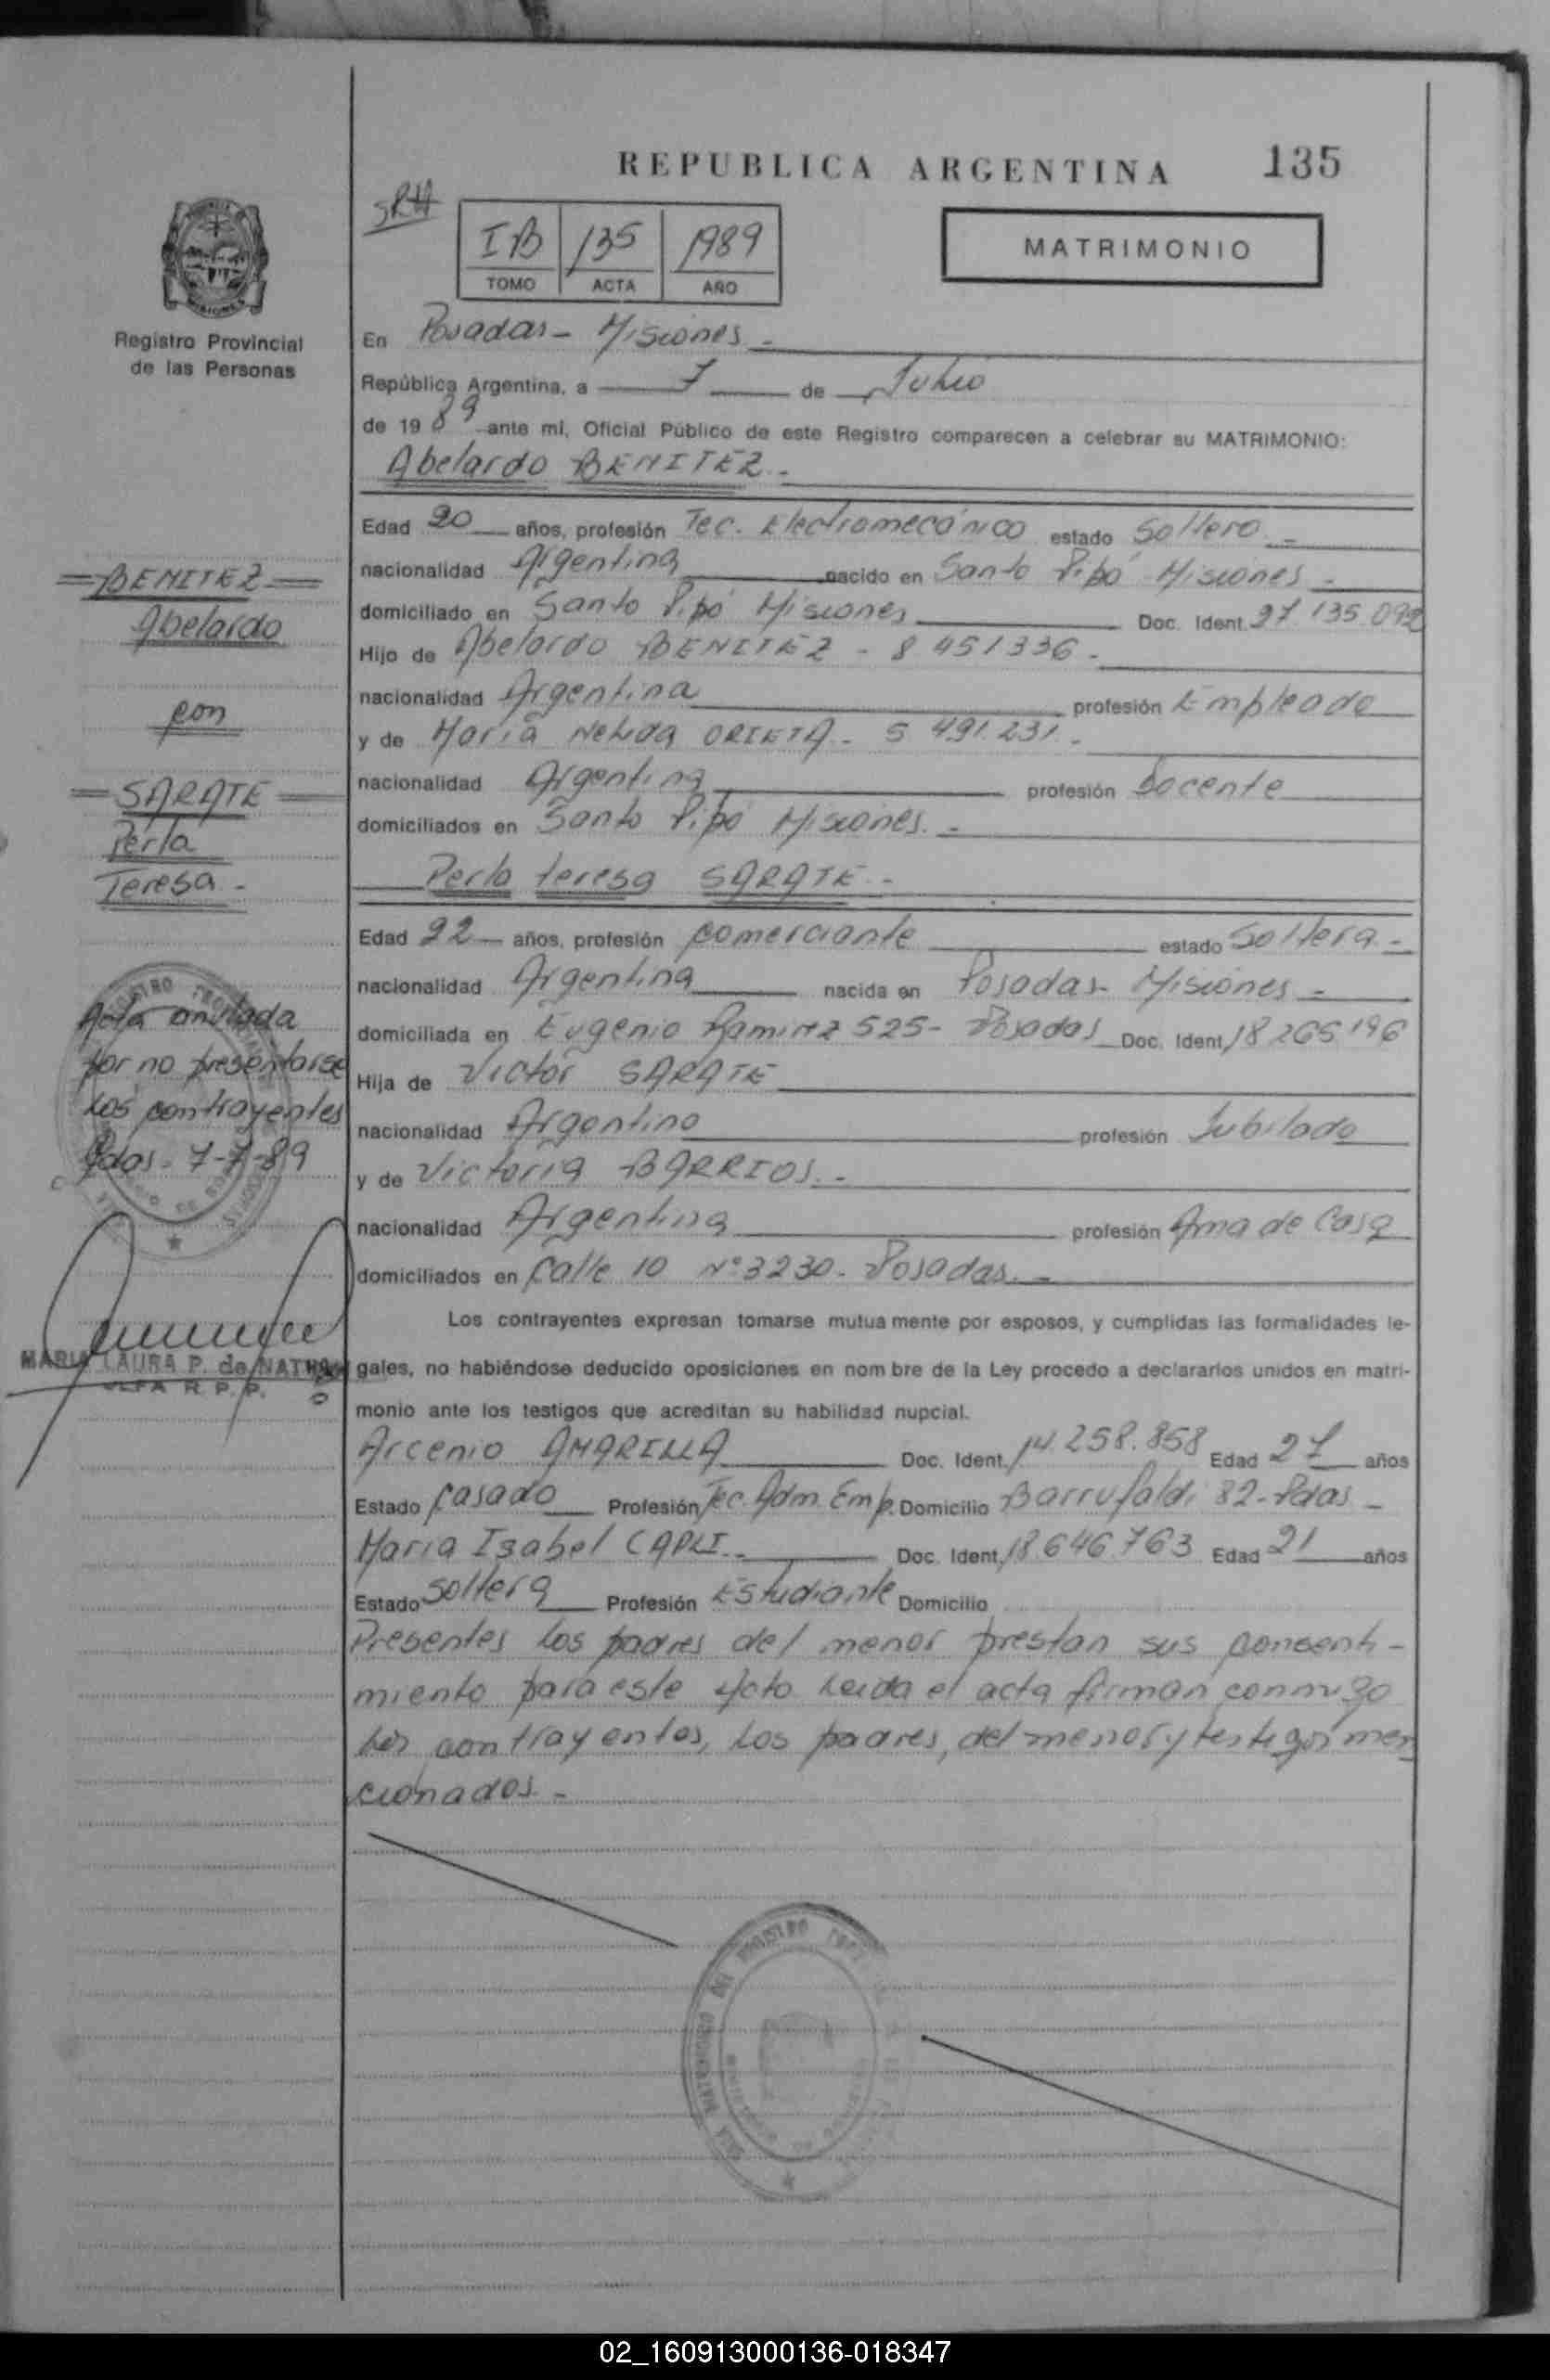 REPUBLICA ARGENTINA 135
SRH
IB 135 1989
TOMO ACTA AÑO
MATRIMONIO
Registro Provincial
de las Personas
En Posadas - Misiones -
República Argentina, a 7 de Julio
de 1989 ante mí, Oficial Público de este Registro comparecen a celebrar su MATRIMONIO:
Abelardo BENITEZ.-
Edad 20 años, profesión Tec. Electromecánico estado Soltero.-
nacionalidad Argentina nacido en Santo Pipó Misiones -
domiciliado en Santo Pipó Misiones Doc. Ident. 27.135.092
Hijo de Abelardo BENITEZ - 8 451336 -
nacionalidad Argentina profesión Empleado
y de María Nelida ORIETA - 5 491.231.-
nacionalidad Argentina profesión Docente
domiciliados en Santo Pipó Misiones.-
Perla teresa SARATE.-
Edad 22 años, profesión comerciante estado Soltera -
nacionalidad Argentina nacida en Posadas- Misiones -
domiciliada en Eugenio Ramirez 525- Posadas Doc. Ident. 18 265 196
Hija de Victor SARATE
nacionalidad Argentino profesión Jubilado
y de Victoria BARRIOS.-
nacionalidad Argentina profesión Ama de Casa
domiciliados en Calle 10 Nº 3230 - Posadas.-
Los contrayentes expresan tomarse mutua mente por esposos, y cumplidas las formalidades le-
gales, no habiéndose deducido oposiciones en nom bre de la Ley procedo a declararlos unidos en matri-
monio ante los testigos que acreditan su habilidad nupcial.
Arcenio AMARILLA Doc. Ident. 14.258.858 Edad 27 años
Estado Casado Profesión Tec. Adm. Emp. Domicilio Barrufaldi 82 - Pdas -
Maria Isabel CAPLI.- Doc. Ident. 18.646.763 Edad 21 años
Estado Soltera Profesión Estudiante Domicilio
Presentes los padres del menor prestan sus consenti-
miento para este acto. Leida el acta firman conmigo
los contrayentes, los padres, del menor y testigos men
cionados.-
BENITEZ
Abelardo
con
SARATE
Perla
Teresa -
Acta anulada
por no presentarse
los contrayentes
Pdas. 7-7-89
MARIA LAURA P. de
JEFA R. P. P.
02_160913000136-018347